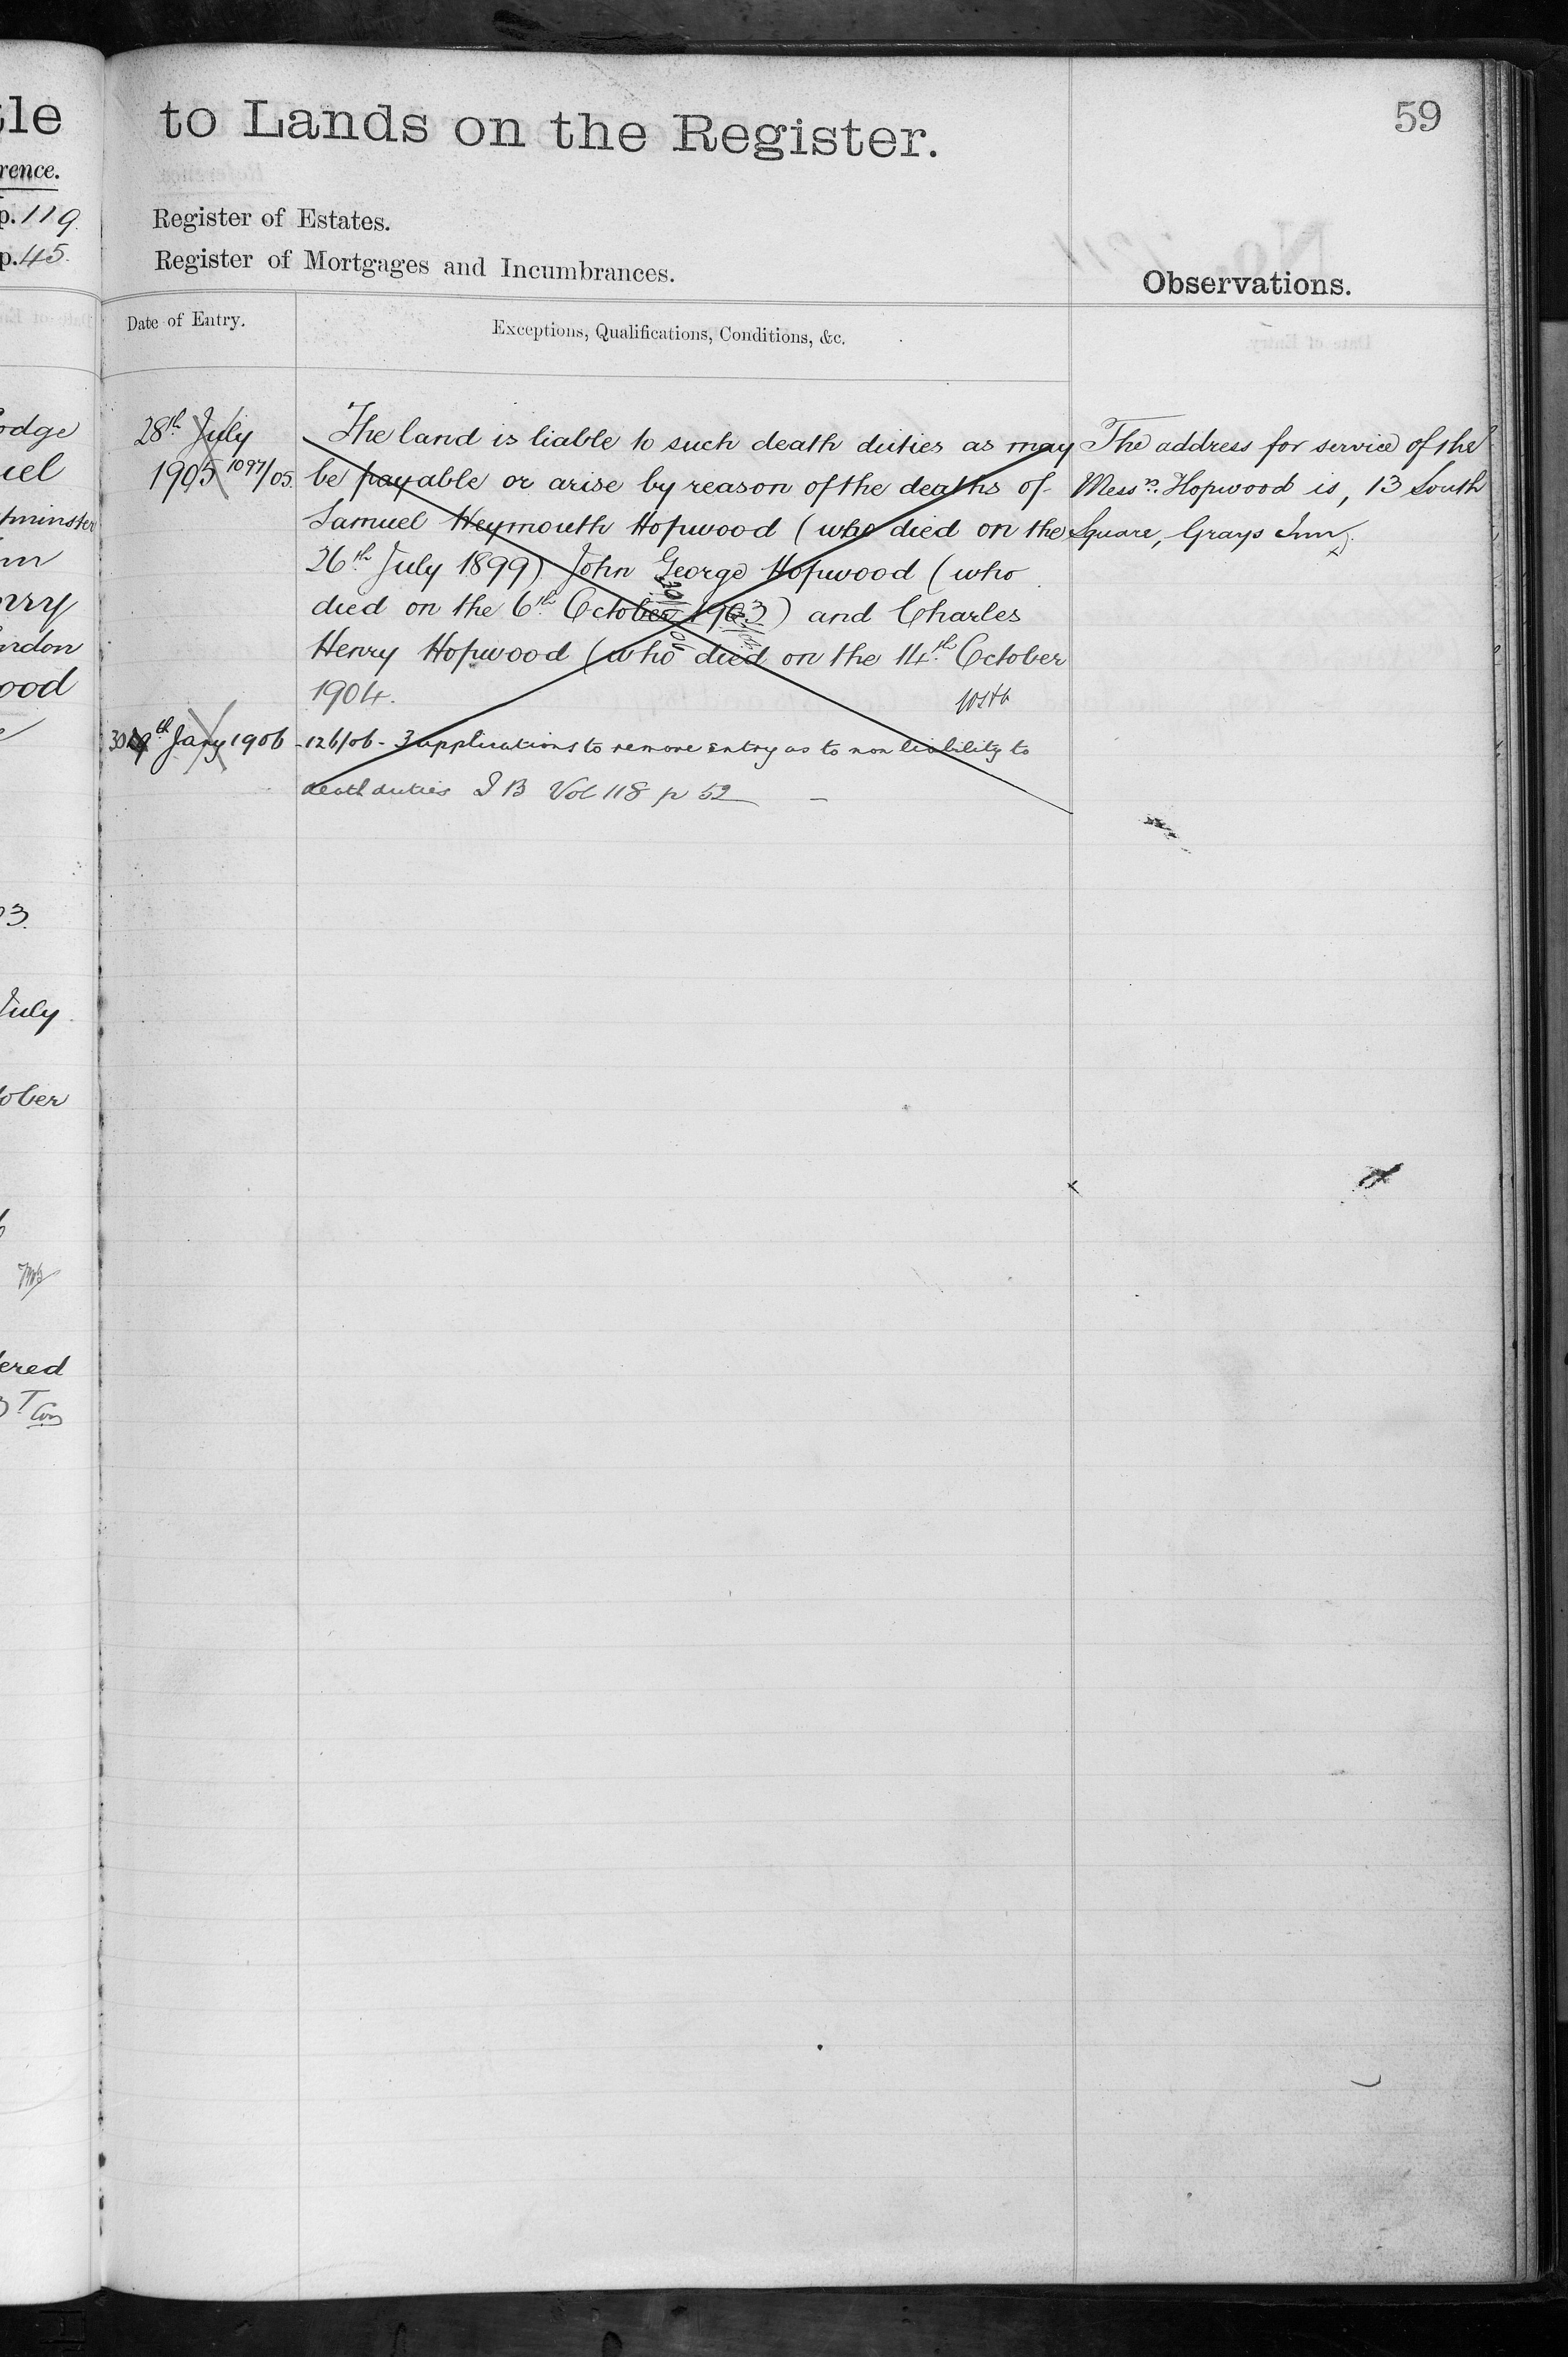 tle
rence.
p. 119.
p. 45.
odge
uel
tminster
nn
nry
ndon
ood
03.
July
tober
ered
to Lands on the Register.
59
Register of Estates.
Register of Mortgages and Incumbrances.
Observations.
Date of Entry.
Exceptions, Qualifications, Conditions, &c.
28th July
1905 1097/05.
The land is liable to such death duties as may
be payable or arise by reason of the deaths of
Samuel Weymouth Hopwood (who died on the
26th July 1899) John George Hopwood (who
died on the 6th October 1903) and Charles
Henry Hopwood (who died on the 14th October
1904.
30th Jany 1906 - 126/06 - 3 applications to remove entry as to non liability to
death duties I B Vol 118 p 52
The address for service of the
Messrs. Hopwood is, 13 South
Square, Grays Inn.